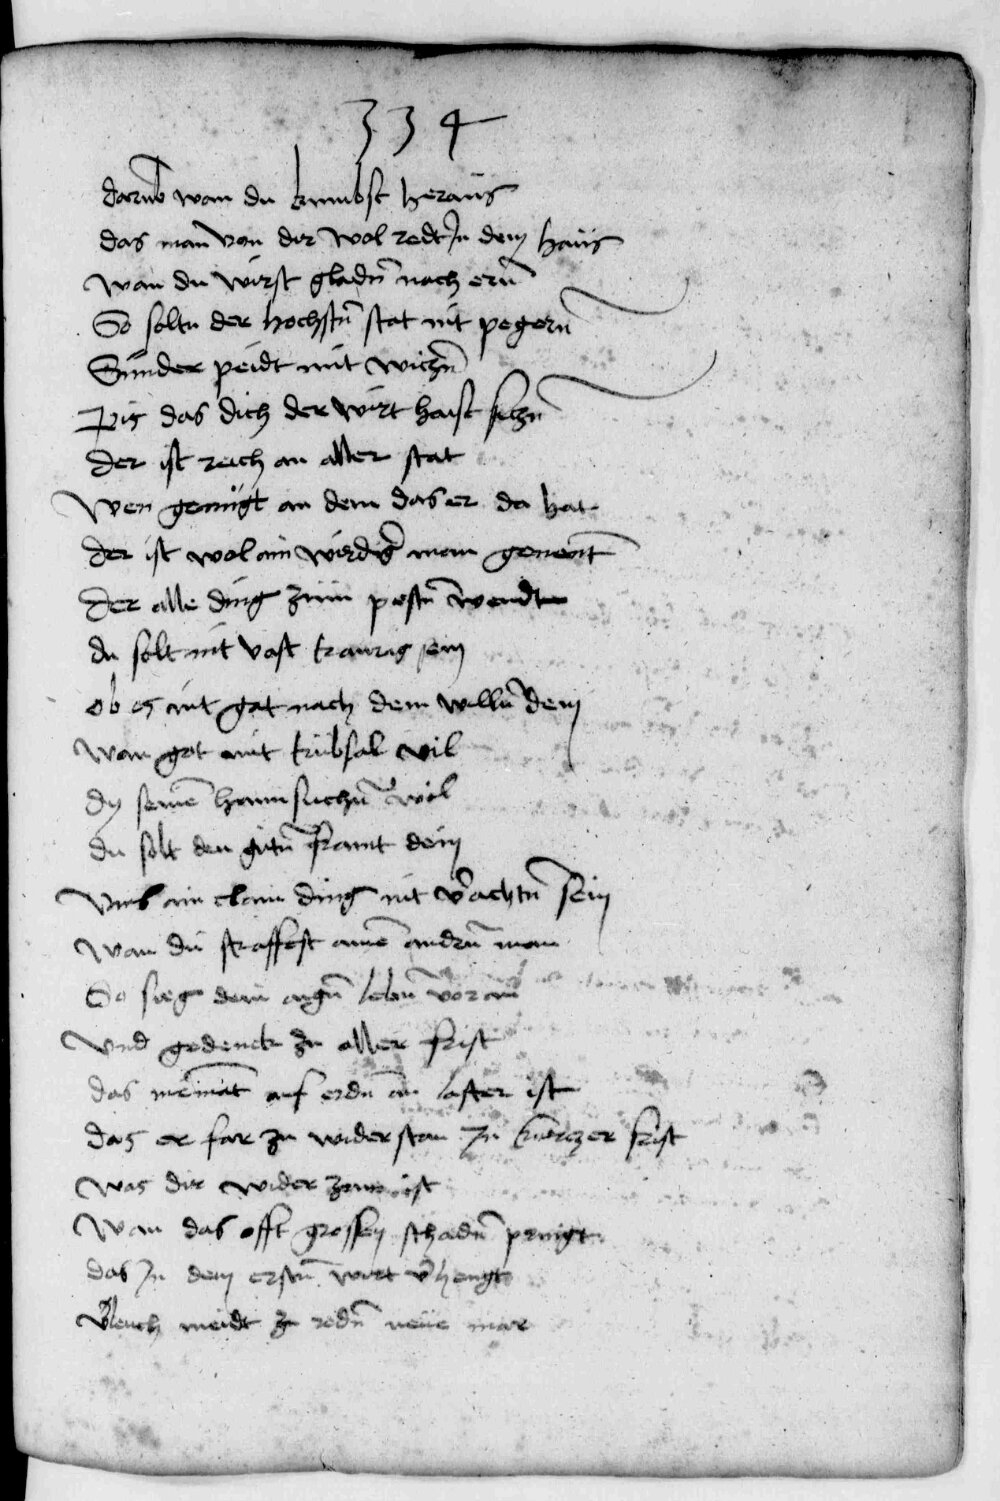 334
darumb wan du kumbst heraus
das man von dir wol redt In dem haus
wan du wirst gladn̄ nach ern̄
So soltu der hochstn̄ stat nit pegern̄
Sunder peidt mit wiczn̄
Pis das dich der wirt haist siczn̄
der ist reich an aller stat
wen genugt an dem das er da hat
der ist wol ain wirdig man genent
der alle ding zum pestn̄ wendt
du solt nit vast traurig sein
ob es nit gat nach dem willn̄ dein
wan got mit trubsal vil
dy seinē haimsuchn̄ wil
du solt den gutn̄ fraint dein
vmb ain clain ding nit v̄achtn̄ sein
wan du straffest ainē andrn̄ man
So sieg dein aign̄ lebn̄ vor an
vnd gedenck zu aller frist
das niēmāt auf erdn̄ an laster ist
das er far zu widerstan In kurczer frist
was dir wider zam ist
wan das offt grossen schadn̄ pringt
das In dem erstn̄ wirt v̄hengt
Auch meidt zu redn̄ neue mar